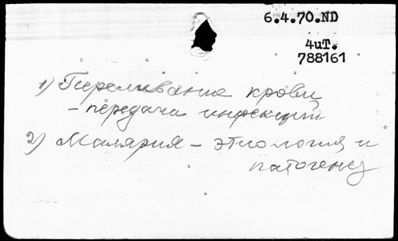 6.4.70.ND
4иТ.
788161
1) Переливание крови
- передача инфекций
2) Малярия - этиология и
патогенез